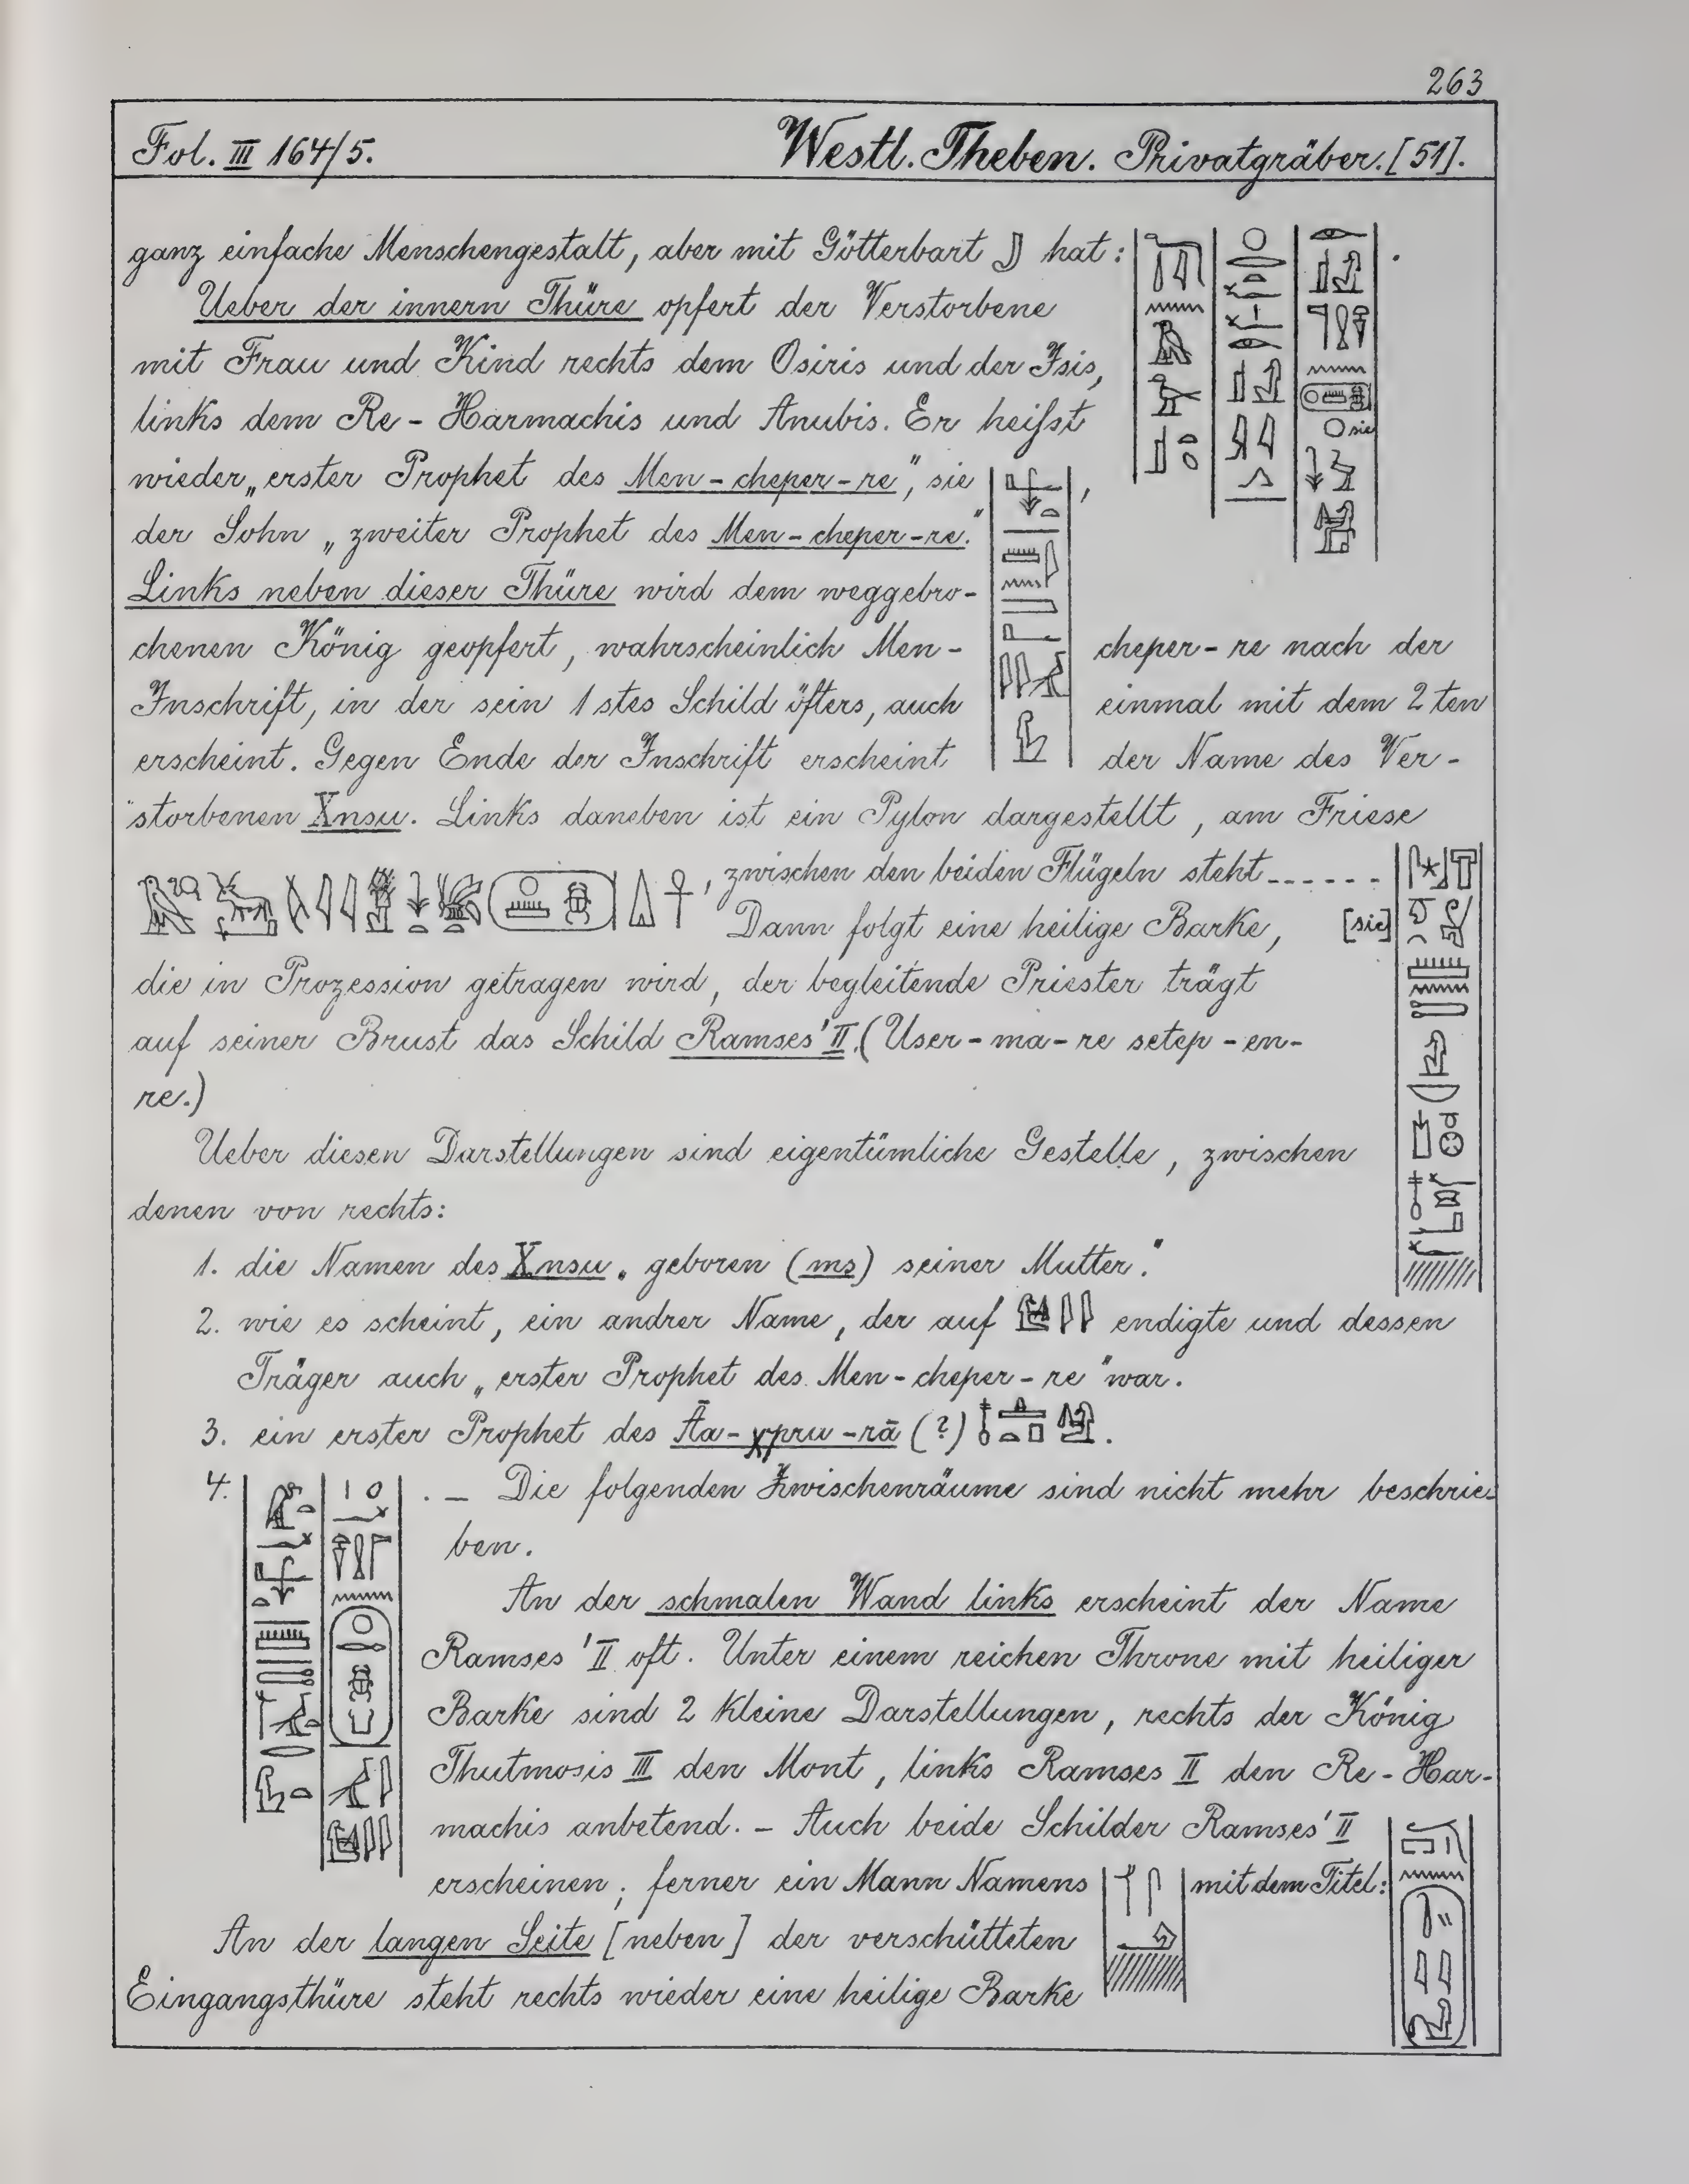 263
Fol. III 164/5.
Westl. Theben. Privatgräber. [51].
ganz einfache Menschengestalt, aber mit Götterbart hat:
Ueber der innern Thüre opfert der Verstorbene
mit Frau und Kind rechts dem Osiris und der Isis,
links dem Re-Harmachis und Anubis. Er heifst
wieder „erster Prophet des Men-cheper-re", sie
der Sohn „zweiter Prophet des Men-cheper-re."
Links neben dieser Thüre wird dem weggebro-
chenen König geopfert, wahrscheinlich Men- cheper-re nach der
Inschrift, in der sein 1stes Schild öfters, auch einmal mit dem 2ten
erscheint. Gegen Ende der Inschrift erscheint der Name des Ver-
storbenen Xnsu. Links daneben ist ein Pylon dargestellt, am Friese
, zwischen den beiden Flügeln steht......
Dann folgt eine heilige Barke, [sic]
die in Prozession getragen wird, der begleitende Priester trägt
auf seiner Brust das Schild Ramses' II. (User-ma-re setep-en-
re.)
Ueber diesen Darstellungen sind eigentümliche Gestelle, zwischen
denen von rechts:
1. die Namen des Xnsu „geboren (ms) seiner Mutter."
2. wie es scheint, ein andrer Name, der auf endigte und dessen
Träger auch „erster Prophet des Men-cheper-re" war.
3. ein erster Prophet des Āa-χpru-rā (?) .
4. . – Die folgenden Zwischenräume sind nicht mehr beschrie-
ben.
An der schmalen Wand links erscheint der Name
Ramses' II oft. Unter einem reichen Throne mit heiliger
Barke sind 2 kleine Darstellungen, rechts der König
Thutmosis III den Mont, links Ramses II den Re-Har-
machis anbetend. – Auch beide Schilder Ramses' II
erscheinen; ferner ein Mann Namens mit dem Titel:
An der langen Seite [neben] der verschütteten
Eingangsthüre steht rechts wieder eine heilige Barke